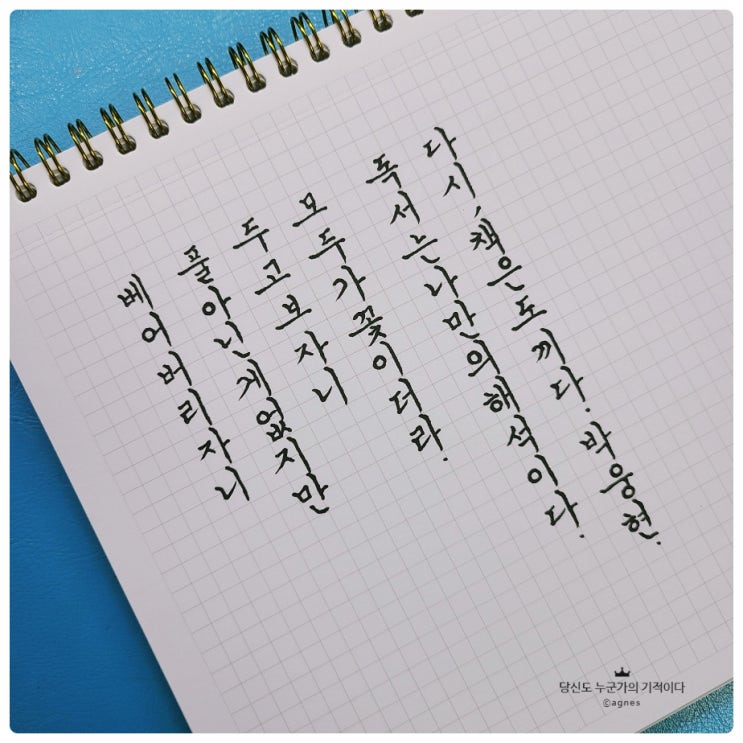 베어버리자니
풀 아닌 게 없지만
두고 보자니
모두가 꽃이더라.
독서는 나만의 해석이다.
다시, 책은 도끼다. 박웅현.
당신도 누군가의 기적이다
©agnes